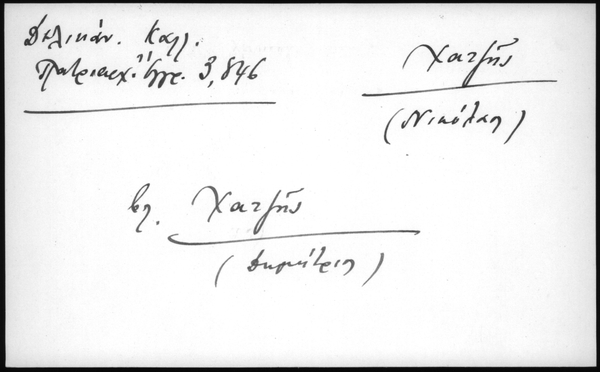 Δελικάν. Καλλ.
Πατριαρχ. Ἔγγρ. 3,846
Χατζῆς
(Νικόλαος)
βλ. Χατζῆς
(Δημήτριος)